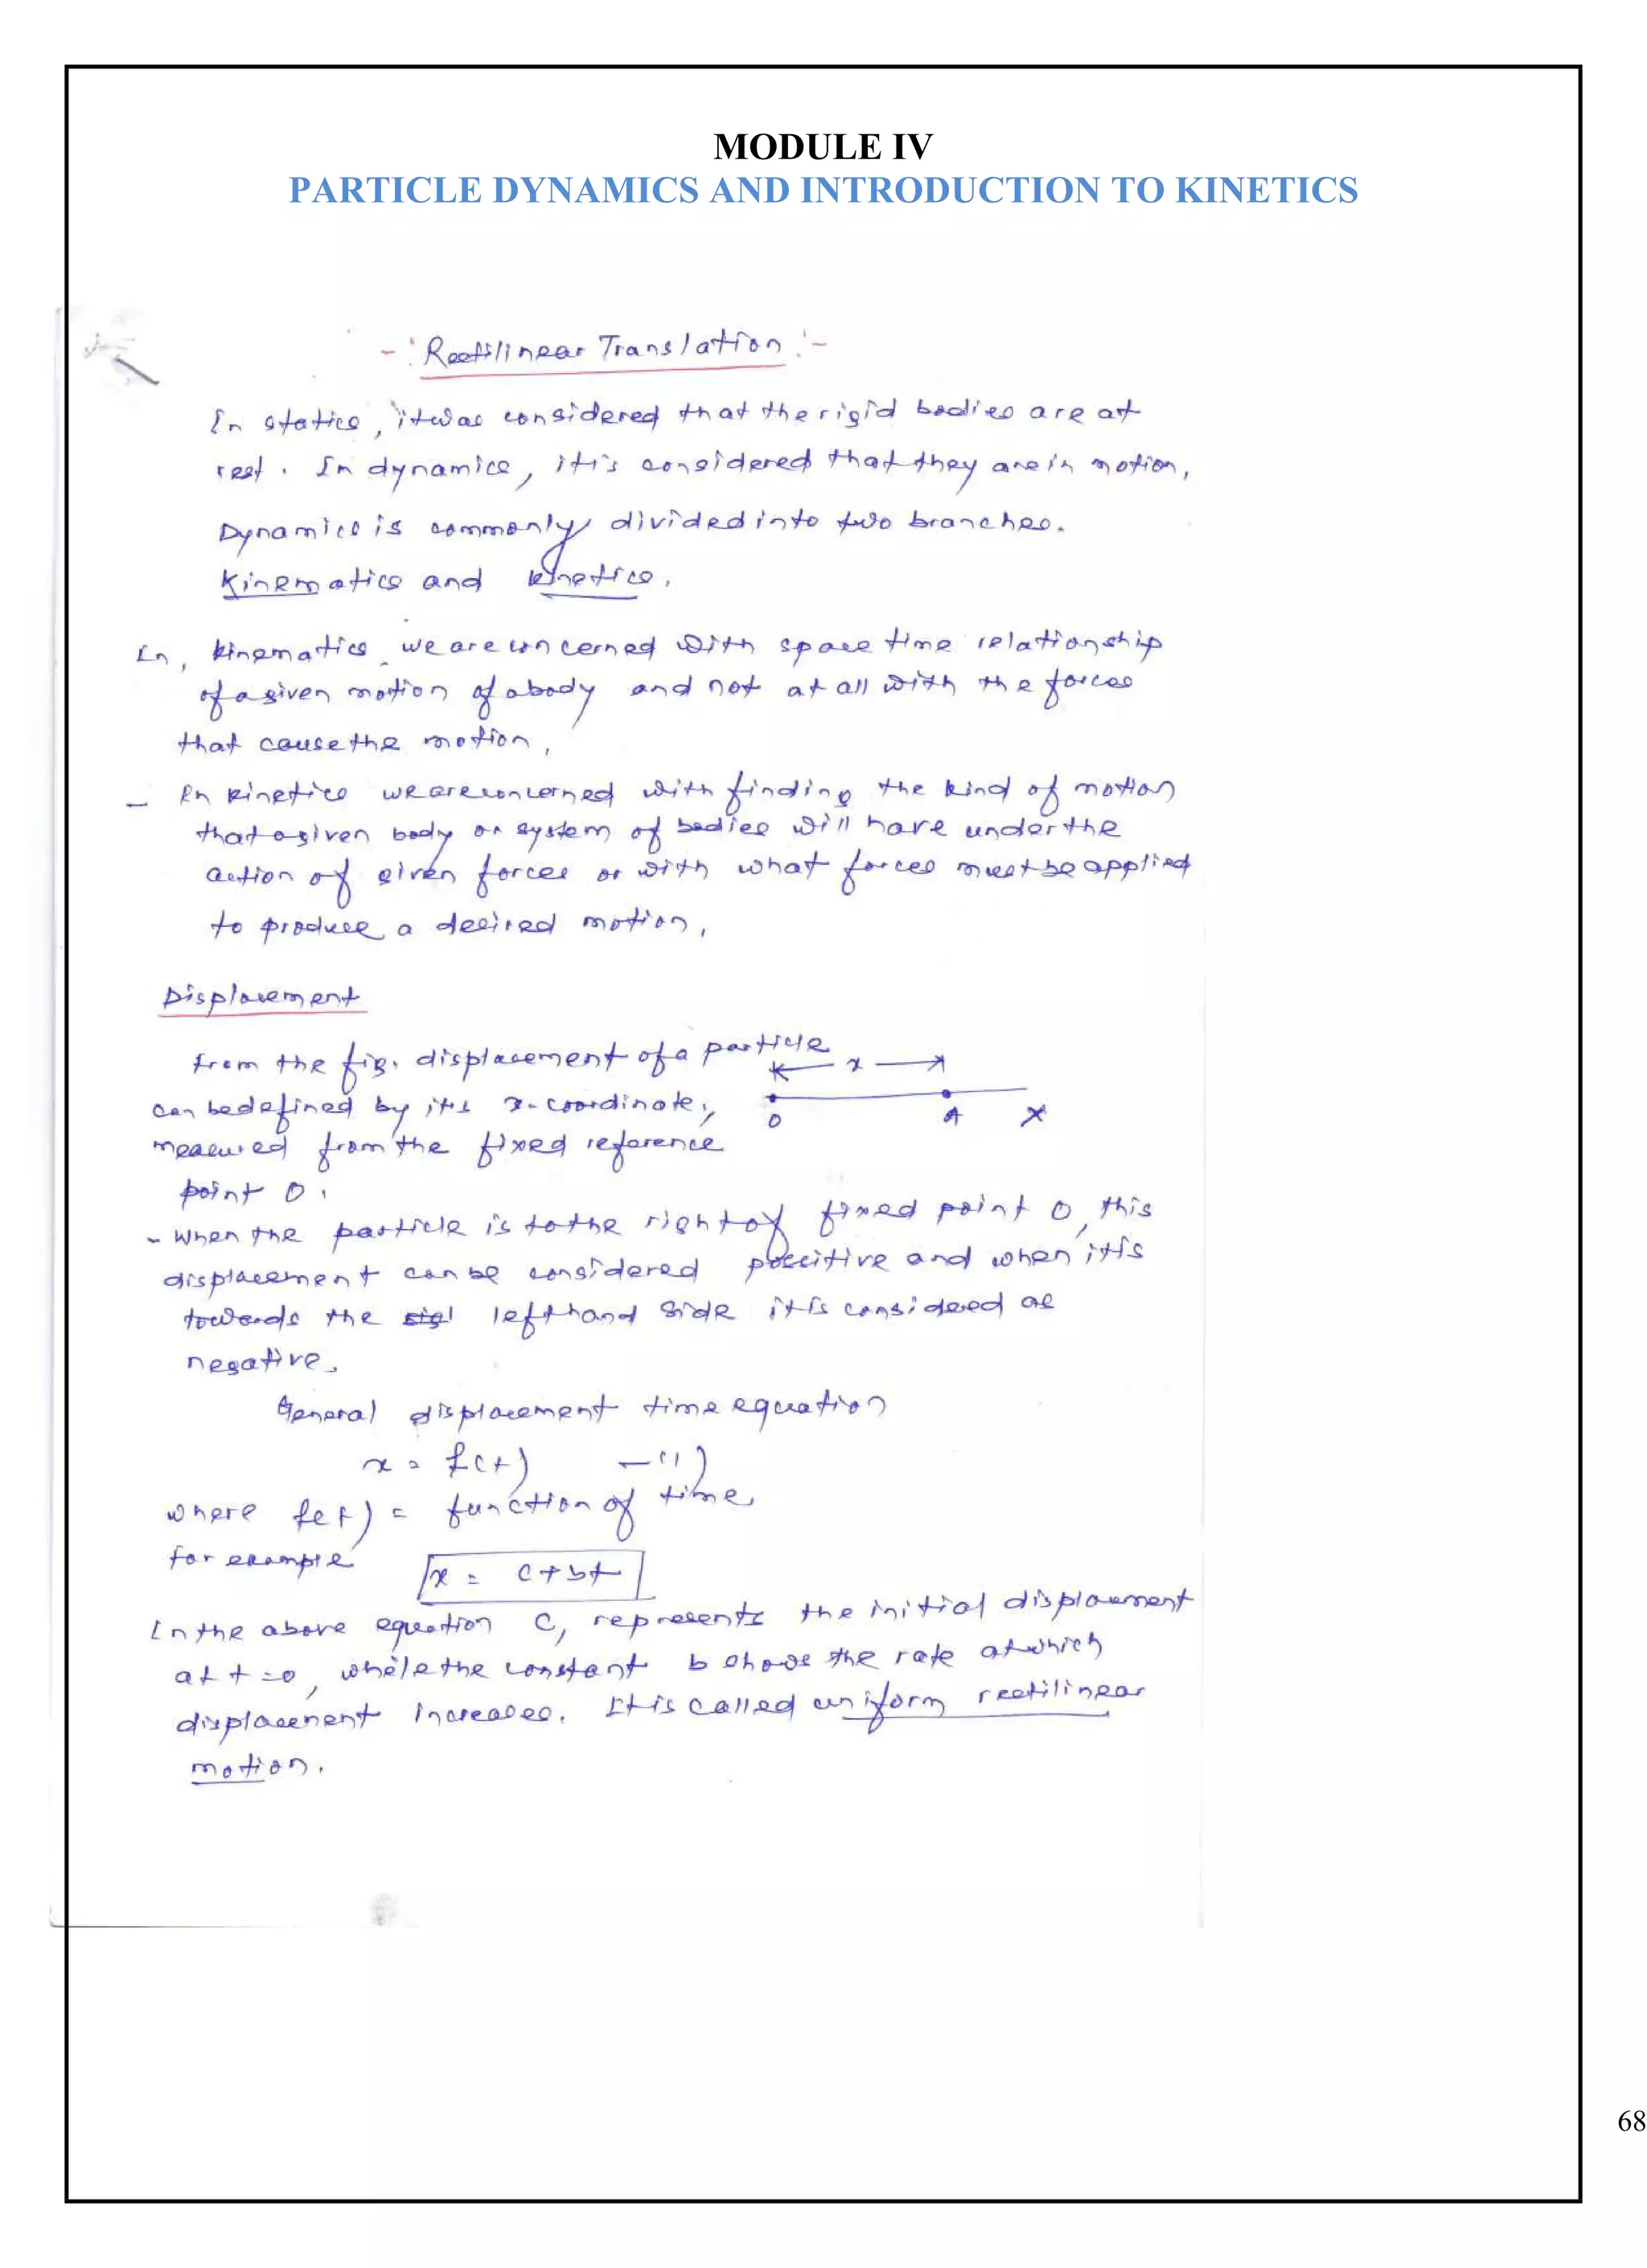 MODULE IV
PARTICLE DYNAMICS AND INTRODUCTION TO KINETICS
-: Rectilinear Translation :-
In statics, it was considered that the rigid bodies are at
rest. In dynamics, it is considered that they are in motion,
Dynamics is commonly divided into two branches.
Kinematics and kinetics,
In, kinematics we are concerned with space time relationship
of a given motion of a body and not at all with the forces
that cause the motion,
- In kinetics we are concerned with finding the kind of motion
that a given body or system of bodies will have under the
action of given forces or with what forces must be applied
to produce a desired motion,
Displacement
From the fig. displacement of a particle
can be defined by its x-coordinate,
measured from the fixed reference
point O.
x
O A X
- When the particle is to the right of fixed point O, this
displacement can be considered possitive and when it is
towards the lefthand side it is considered as
negative.
General displacement time equation
x = f(t) —(1)
where f(t) = function of time,
for example
x = c+bt
In the above equation C, represents the initial displacement
at t=0, while the constant b shows the rate at which
displacenent increases. It is called uniform rectilinear
motion.
68